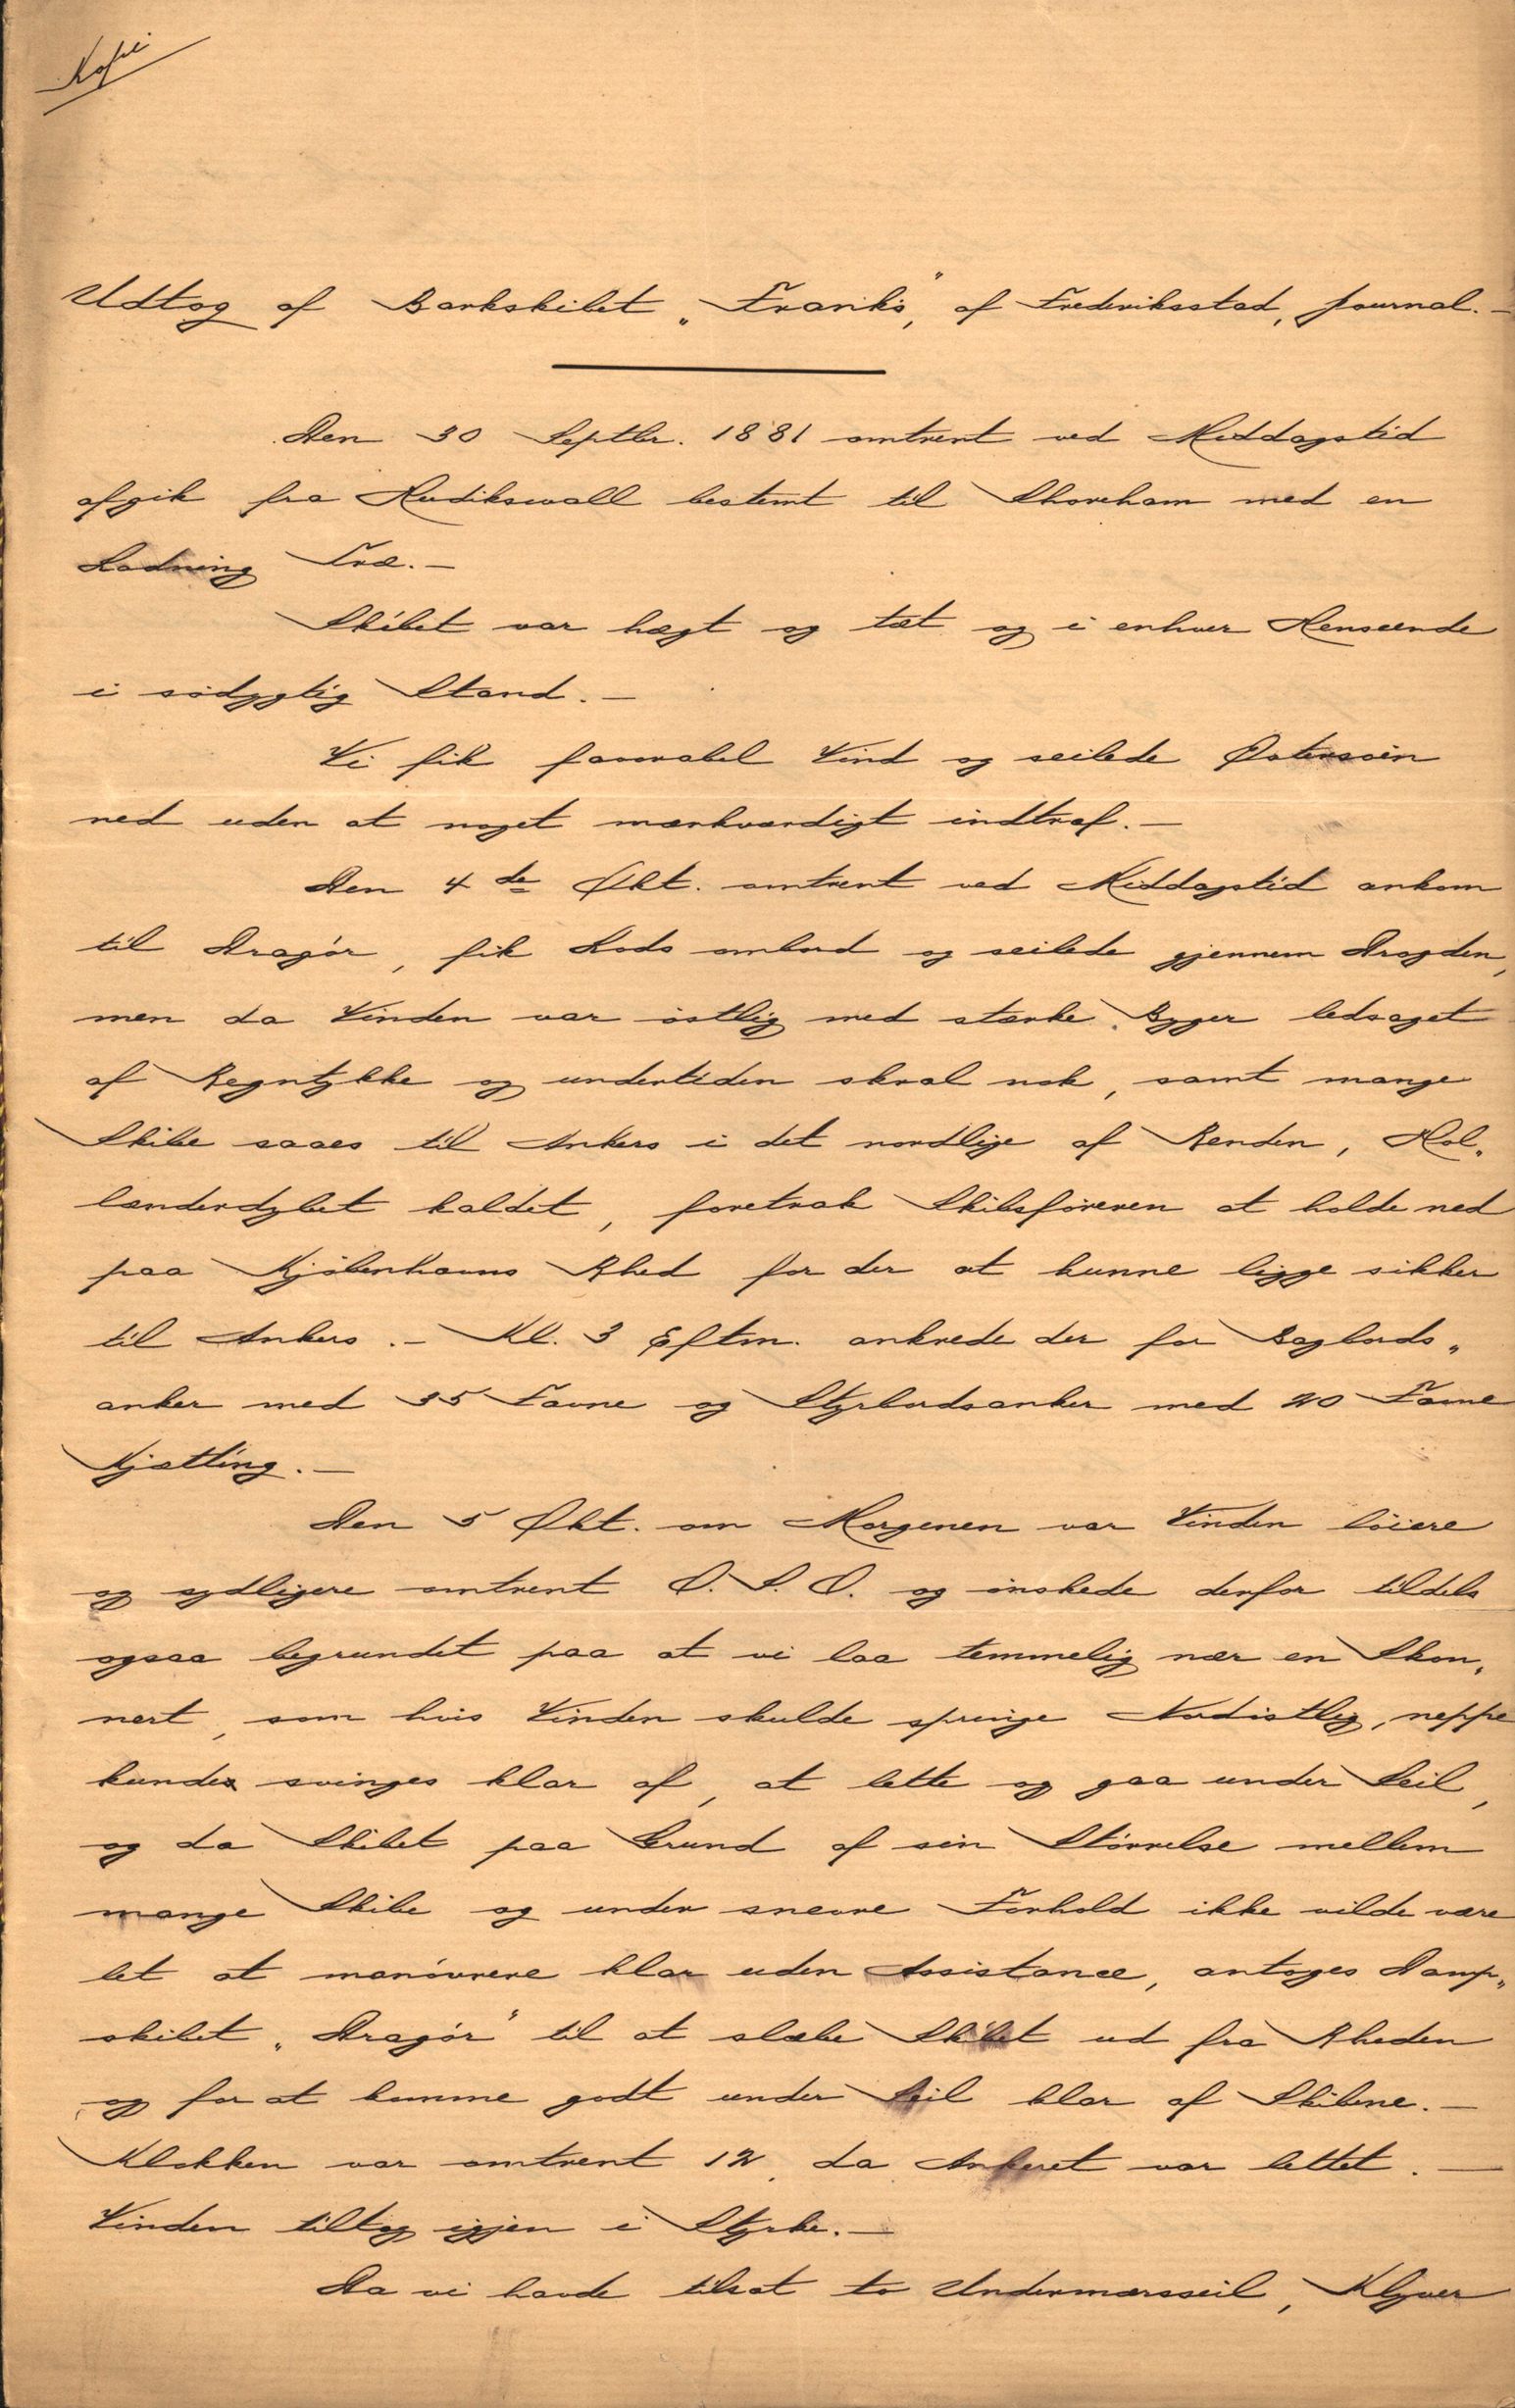 Kopi
Udtog af Barkskibet „Franks“, af Frederiksstad, Journal. —
Den 30 Septbr. 1881 omtrent ved Middagstid
afgik fra Hudikswall bestemt til Shoreham med en
Ladning Træ. —
Skibet var tægt og tæt og i enhver Henseende
i sødygtig Stand. —
Vi fik favorabel Vind og seilede Østersøin
ned uden at noget mærkværdigt indtraf. —
Den 4de Okt. omtrent ved Middagstid ankom
til Dragør, fik Lods ombord og seilede gjennem Drogden,
men da Vinden var østlig med stærke Byger ledsaget
af Regntykke og undertiden skral nok, samt mange
Skibe saaes til Ankers i det nordlige af Renden, Hol„
lænderdybet kaldet, foretrak Skibsføreren at holde ned
paa Kjøbenhavns Rhed for der at kunne ligge sikker
til Ankers. — Kl. 3 Eftm. ankrede der for Bagbords„
anker med 35 Favne og Styrbordsanker med 20 Favne
Kjætting. —
Den 5 Okt. om Morgenen var Vinden løiere
og sydligere omtrent O.S.O. og ønskede derfor tildels
ogsaa begrundet paa at vi laa temmelig nær en Skon„
nert, som hvis Vinden skulde springe Nordøstlig, neppe
kunde svinges klar af, at lette og gaa under Seil,
og da Skibet paa Grund af sin Størrelse mellem
mange Skibe og under snevre Forhold ikke vilde være
let at manøvrere klar uden Assistance, antoges Damp„
skibet „Dragør“ til at slæbe Skibet ud fra Rheden
og for at komme godt under Seil klar af Skibene. —
Klokken var omtrent 12, da Ankeret var lettet. —
Vinden tiltog igjen i Styrke. —
Da vi havde tilsat to Undermærsseil, Klyver